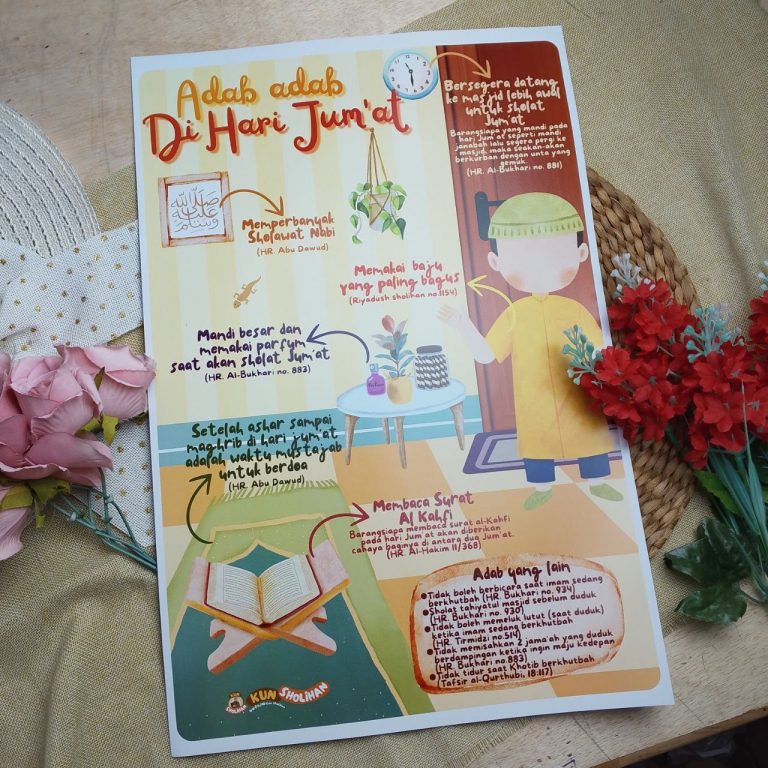 Adab adab
Di Hari Jum'at
Bersegera datang
ke masjid lebih awal
untuk sholat
Jum'at
Barangsiapa yang mandi pada
hari Jum'at seperti mandi
janabah lalu segera pergi ke
masjid, maka seakan-akan
berkurban dengan unta yang
gemuk
(HR. Al-Bukhari no. 881)
صلى الله
عليه
وسلم
Memperbanyak
Sholawat Nabi
(HR. Abu Dawud)
Memakai baju
yang paling bagus
(Riyadush sholihin no.1154)
Mandi besar dan
memakai parfum
saat akan sholat Jum'at
(HR. Al-Bukhari no. 883)
Setelah ashar sampai
maghrib di hari jum'at
adalah waktu mustajab
untuk berdoa
(HR. Abu Dawud)
Membaca Surat
Al Kahfi
Barangsiapa membaca surat al-Kahfi
pada hari Jum'at akan diberikan
cahaya baginya di antara dua Jum'at.
(HR. Al-Hakim II/368)
Adab yang lain
•Tidak boleh berbicara saat imam sedang
berkhutbah (HR. Bukhari no. 934)
•Sholat tahiyatul masjid sebelum duduk
(HR. Bukhari no. 930)
•Tidak boleh memeluk lutut (saat duduk)
ketika imam sedang berkhutbah
(HR. Tirmidzi no.514)
•Tidak memisahkan 2 jama'ah yang duduk
berdampingan ketika ingin maju kedepan
(HR. Bukhari no.883)
•Tidak tidur saat Khotib berkhutbah
(Tafsir al-Qurthubi, 18:117)
KUN SHOLIHAN